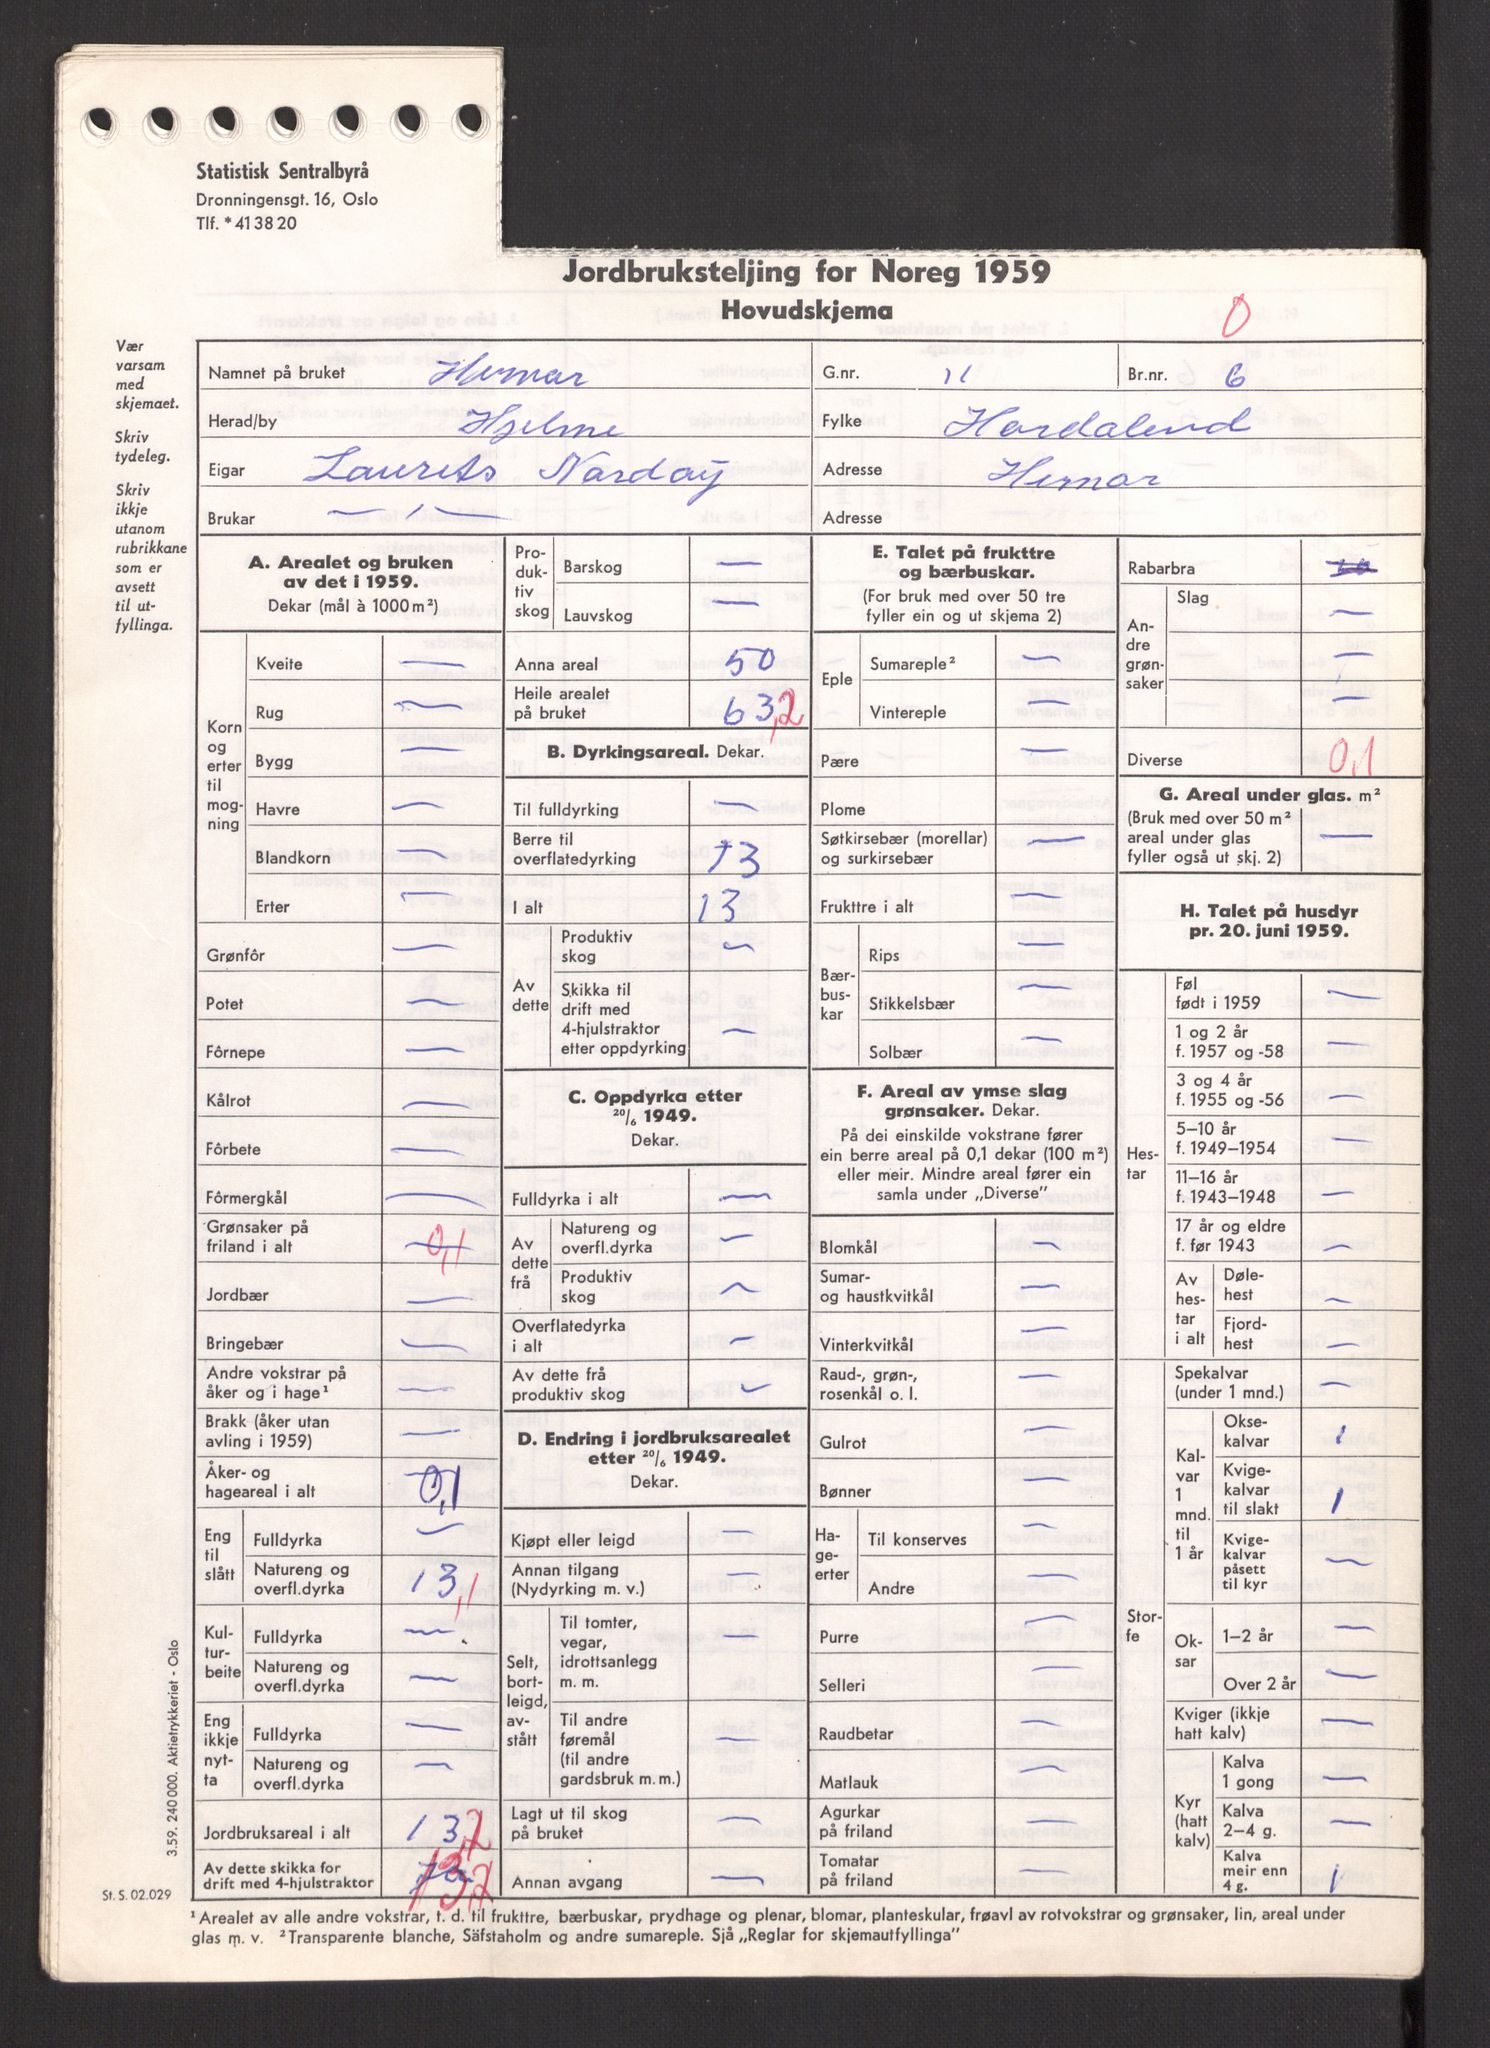 Statistisk Sentralbyrå
Dronningensgt. 16, Oslo
Tlf. * 41 38 20
Jordbruksteljing for Noreg 1959
Hovudskjema
0
Vær
varsam
med
skjemaet.
Skriv
tydeleg.
Skriv
ikkje
utanom
rubrikkane
som er
avsett
til ut-
fyllinga.
Namnet på bruket Hernar G.nr. 11 Br.nr. 6
Herad/by Hjelme Fylke Hordaland
Eigar Laurits Nordøy Adresse Hernar
Brukar — " — Adresse
A. Arealet og bruken
av det i 1959.
Dekar (mål à 1000 m²)
Korn
og
erter
til
mog-
ning
Kveite —
Rug —
Bygg —
Havre —
Blandkorn —
Erter —
Grønfôr —
Potet —
Fôrnepe —
Kålrot —
Fôrbete —
Fôrmergkål —
Grønsaker på
friland i alt 0,1
Jordbær —
Bringebær —
Andre vokstrar på
åker og i hage¹ —
Brakk (åker utan
avling i 1959) —
Åker- og
hageareal i alt 0,1
Eng
til
slått
Fulldyrka —
Natureng og
overfl.dyrka 13,1
Kul-
tur-
beite
Fulldyrka —
Natureng og
overfl.dyrka —
Eng
ikkje
nyt-
ta
Fulldyrka —
Natureng og
overfl.dyrka —
Jordbruksareal i alt 13,2
Av dette skikka for
drift med 4-hjulstraktor 13,2
Pro-
duk-
tiv
skog
Barskog —
Lauvskog —
Anna areal 50
Heile arealet
på bruket 63,2
B. Dyrkingsareal. Dekar.
Til fulldyrking —
Berre til
overflatedyrking 13
I alt 13
Av
dette
Produktiv
skog —
Skikka til
drift med
4-hjulstraktor
etter oppdyrking —
C. Oppdyrka etter
20/6 1949.
Dekar.
Fulldyrka i alt —
Av
dette
frå
Natureng og
overfl.dyrka —
Produktiv
skog —
Overflatedyrka
i alt —
Av dette frå
produktiv skog —
D. Endring i jordbruksarealet
etter 20/6 1949.
Dekar.
Kjøpt eller leigd —
Annan tilgang
(Nydyrking m. v.) —
Selt,
bort-
leigd,
av-
stått
Til tomter,
vegar,
idrottsanlegg
m. m. —
Til andre
føremål
(til andre
gardsbruk m. m.) —
Lagt ut til skog
på bruket —
Annan avgang —
E. Talet på frukttre
og bærbuskar.
(For bruk med over 50 tre
fyller ein og ut skjema 2)
Eple
Sumareple² —
Vintereple —
Pære —
Plome —
Søtkirsebær (morellar)
og surkirsebær —
Frukttre i alt —
Bær-
bus-
kar
Rips —
Stikkelsbær —
Solbær —
F. Areal av ymse slag
grønsaker. Dekar.
På dei einskilde vokstrane fører
ein berre areal på 0,1 dekar (100 m²)
eller meir. Mindre areal fører ein
samla under „Diverse”
Blomkål —
Sumar-
og haustkvitkål —
Vinterkvitkål —
Raud-, grøn-,
rosenkål o. l. —
Gulrot —
Bønner —
Ha-
ge-
erter
Til konserves —
Andre —
Purre —
Selleri —
Raudbetar —
Matlauk —
Agurkar
på friland —
Tomatar
på friland —
Rabarbra
An-
dre
grøn-
saker
Slag —
—
—
Diverse 0,1
G. Areal under glas. m²
(Bruk med over 50 m²
areal under glas
fyller også ut skj. 2) —
H. Talet på husdyr
pr. 20. juni 1959.
Hes-
tar
Føl
født i 1959 —
1 og 2 år
f. 1957 og -58 —
3 og 4 år
f. 1955 og -56 —
5–10 år
f. 1949–1954 —
11–16 år
f. 1943–1948 —
17 år og eldre
f. før 1943 —
Av
hes-
tar
i alt
Døle-
hest —
Fjord-
hest —
Stor-
fe
Spekalvar
(under 1 mnd.) —
Kal-
var
1
mnd.
til
1 år
Okse-
kalvar 1
Kvige-
kalvar
til slakt 1
Kvige-
kalvar
påsett
til kyr —
Ok-
sar
1–2 år —
Over 2 år —
Kviger (ikkje
hatt kalv) —
Kyr
(hatt
kalv)
Kalva
1 gong —
Kalva
2–4 g. —
Kalva
meir enn
4 g. 1
3.59. 240 000. Aktietrykkeriet - Oslo
St. S. 02.029
¹ Arealet av alle andre vokstrar, t. d. til frukttre, bærbuskar, prydhage og plenar, blomar, planteskular, frøavl av rotvokstrar og grønsaker, lin, areal under
glas m. v. ² Transparente blanche, Säfstaholm og andre sumareple. Sjå „Reglar for skjemautfyllinga”